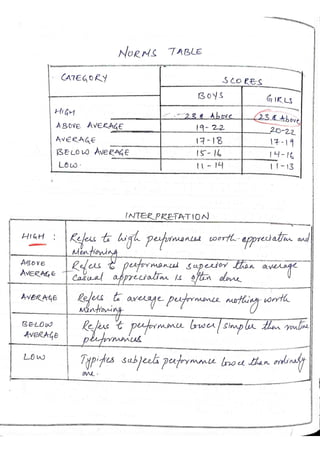 NORMS TABLE
CATEGORY SCORES
BOYS GIRLS
HIGH 23 & Above 23 & Above
ABOVE AVERAGE 19-22 20-22
AVERAGE 17-18 17-19
BELOW AVERAGE 15-16 14-16
LOW 11-14 11-13
INTERPRETATION
HIGH : Refers to high performances worth appreciation and
Mentioning
ABOVE AVERAGE Refers to performances superior than average
Casual appreciation is often done
AVERAGE Refers to average performance nothing worth
Mentioning
BELOW AVERAGE Refers to performance lower/simpler than routine
performances
LOW Typifies subjects performance lower than ordinary
one.